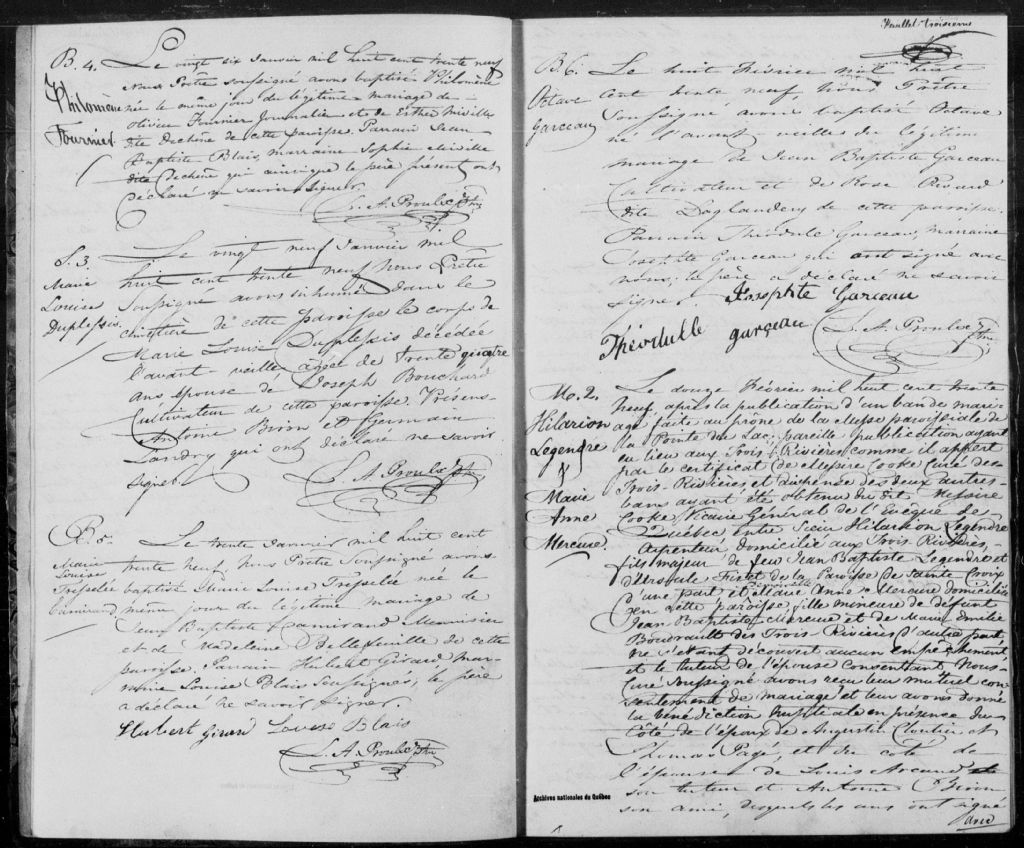 B. 4.
Philomène
Fournier
Le vingt six Janvier mil huit cent trente neuf
Nous Prêtre soussigné avons baptisé Philomène
née le même jour du légitime mariage de
Olivier Fournier Journalier et de Esther Miville
dite Dechêne de cette paroisse. Parrain Jean
Baptiste Blais, marraine Sophie Miville
dite Dechêne qui ainsi que le père présent ont
déclaré ne savoir signer.
L. A. Proulx Ptre
S. 3
Marie
Louise
Duplessis
Le vingt neuf Janvier mil
huit cent trente neuf Nous Prêtre
Soussigné avons inhumé dans le
cimétière de cette paroisse le corps de
Marie Louise Duplessis décédée
l'avant veille agée de trente quatre
ans épouse de Joseph Bouchard
Cultivateur de cette paroisse. Présens
Antoine Biron et Germain
Landry qui ont déclaré ne savoir
signer.
L. A. Proulx Ptre
B. 5.
Marie
Louise
Trefselée
Lamirand
Le trente Janvier mil huit cent
trente neuf, Nous Prêtre Soussigné avons
baptisé Marie Louise Trefselée née le
même jour du légitime mariage de
Jean Baptiste Lamirand Menuisier
et de Madeleine Bellefeuille de cette
paroisse. Parrain Hubert Girard mar-
raine Louise Blais Soussignés, le père
a déclaré ne savoir signer.
Hubert Girard Louise Blais
L. A. Proulx Ptre
Feuillet troisieme
B. 6.
Octave
Garceau
Le huit Février mil huit
cent trente neuf, Nous Prêtre
Soussigné avons baptisé Octave
né l'avant veille du légitime
mariage de Jean Baptiste Garceau
Cultivateur et de Rose Rivard
dite Laglanderie de cette paroisse.
Parrain Théodule Garceau, marraine
Josephte Garceau qui ont signé avec
nous, le père a déclaré ne savoir
signer.
Josephte Garceau
Théodulle garçeau
L. A. Proulx Ptre
M. 2.
Hilarion
Legendre
&
Marie
Anne
Mercure.
Le douze Février mil huit cent trente
neuf, après la publication d'un ban de mari-
age faite au prône de la Messe paroissiale de
la Pointe du Lac, pareille publication ayant
eu lieu aux Trois-Rivières comme il appert
par le certificat de Messire Cooke Curé des
Trois-Rivières et dispense des deux autres
bans ayant été obtenu du dit Messire
Cooke, Vicaire Général de l'Evêque de
Québec entre Sieur Hilarion Legendre
Arpenteur, domicilié aux Trois Rivières,
fils majeur de feu Jean Baptiste Legendre et
d'Ursule Fiset de la Paroisse de Sainte Croix
d'une part et Demoiselle Marie Anne Mercure domiciliée
en cette paroisse fille mineure de défunt
Jean Baptiste Mercure et de Marie Emilie
Boudrault des Trois-Rivières d'autre part
ne s'étant découvert aucun empêchement
et le tuteur de l'épouse consentant, Nous
Curé Soussigné avons reçu leur mutuel con-
sentement de mariage et leur avons donné
la bénédiction nuptiale en présence du
côté de l'époux de Augustin Cloutier et
Thomas Pagé, et du coté de
l'épouse de Louis Arcand
son tuteur et Antoine Biron
son ami, desquels les uns ont signé
avec
Archives nationales du Québec